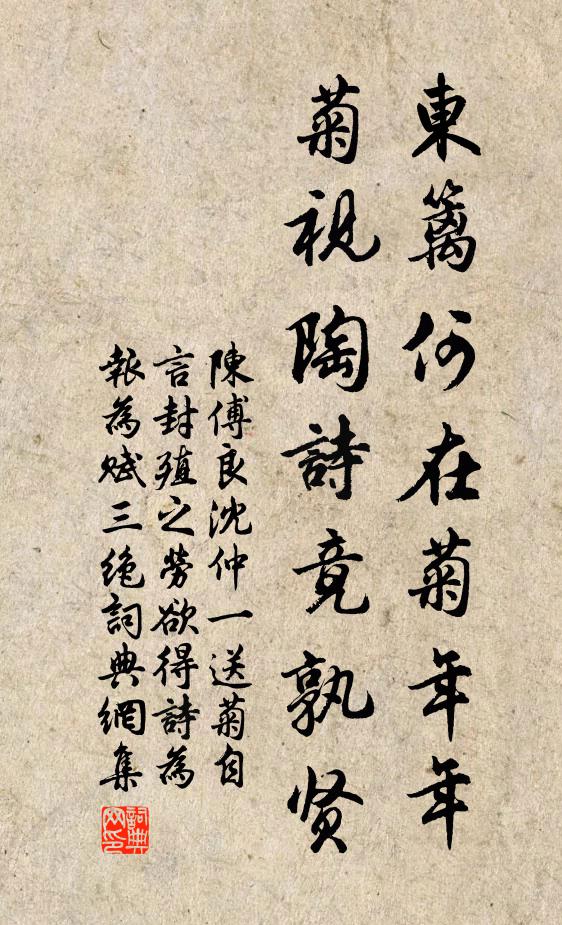 東籬何在菊年年
菊視陶詩竟孰贤
陳傅良沈仲一送菊自
言封殖之勞欲得詩為
報為賦三絶詞典網集
詞典网印